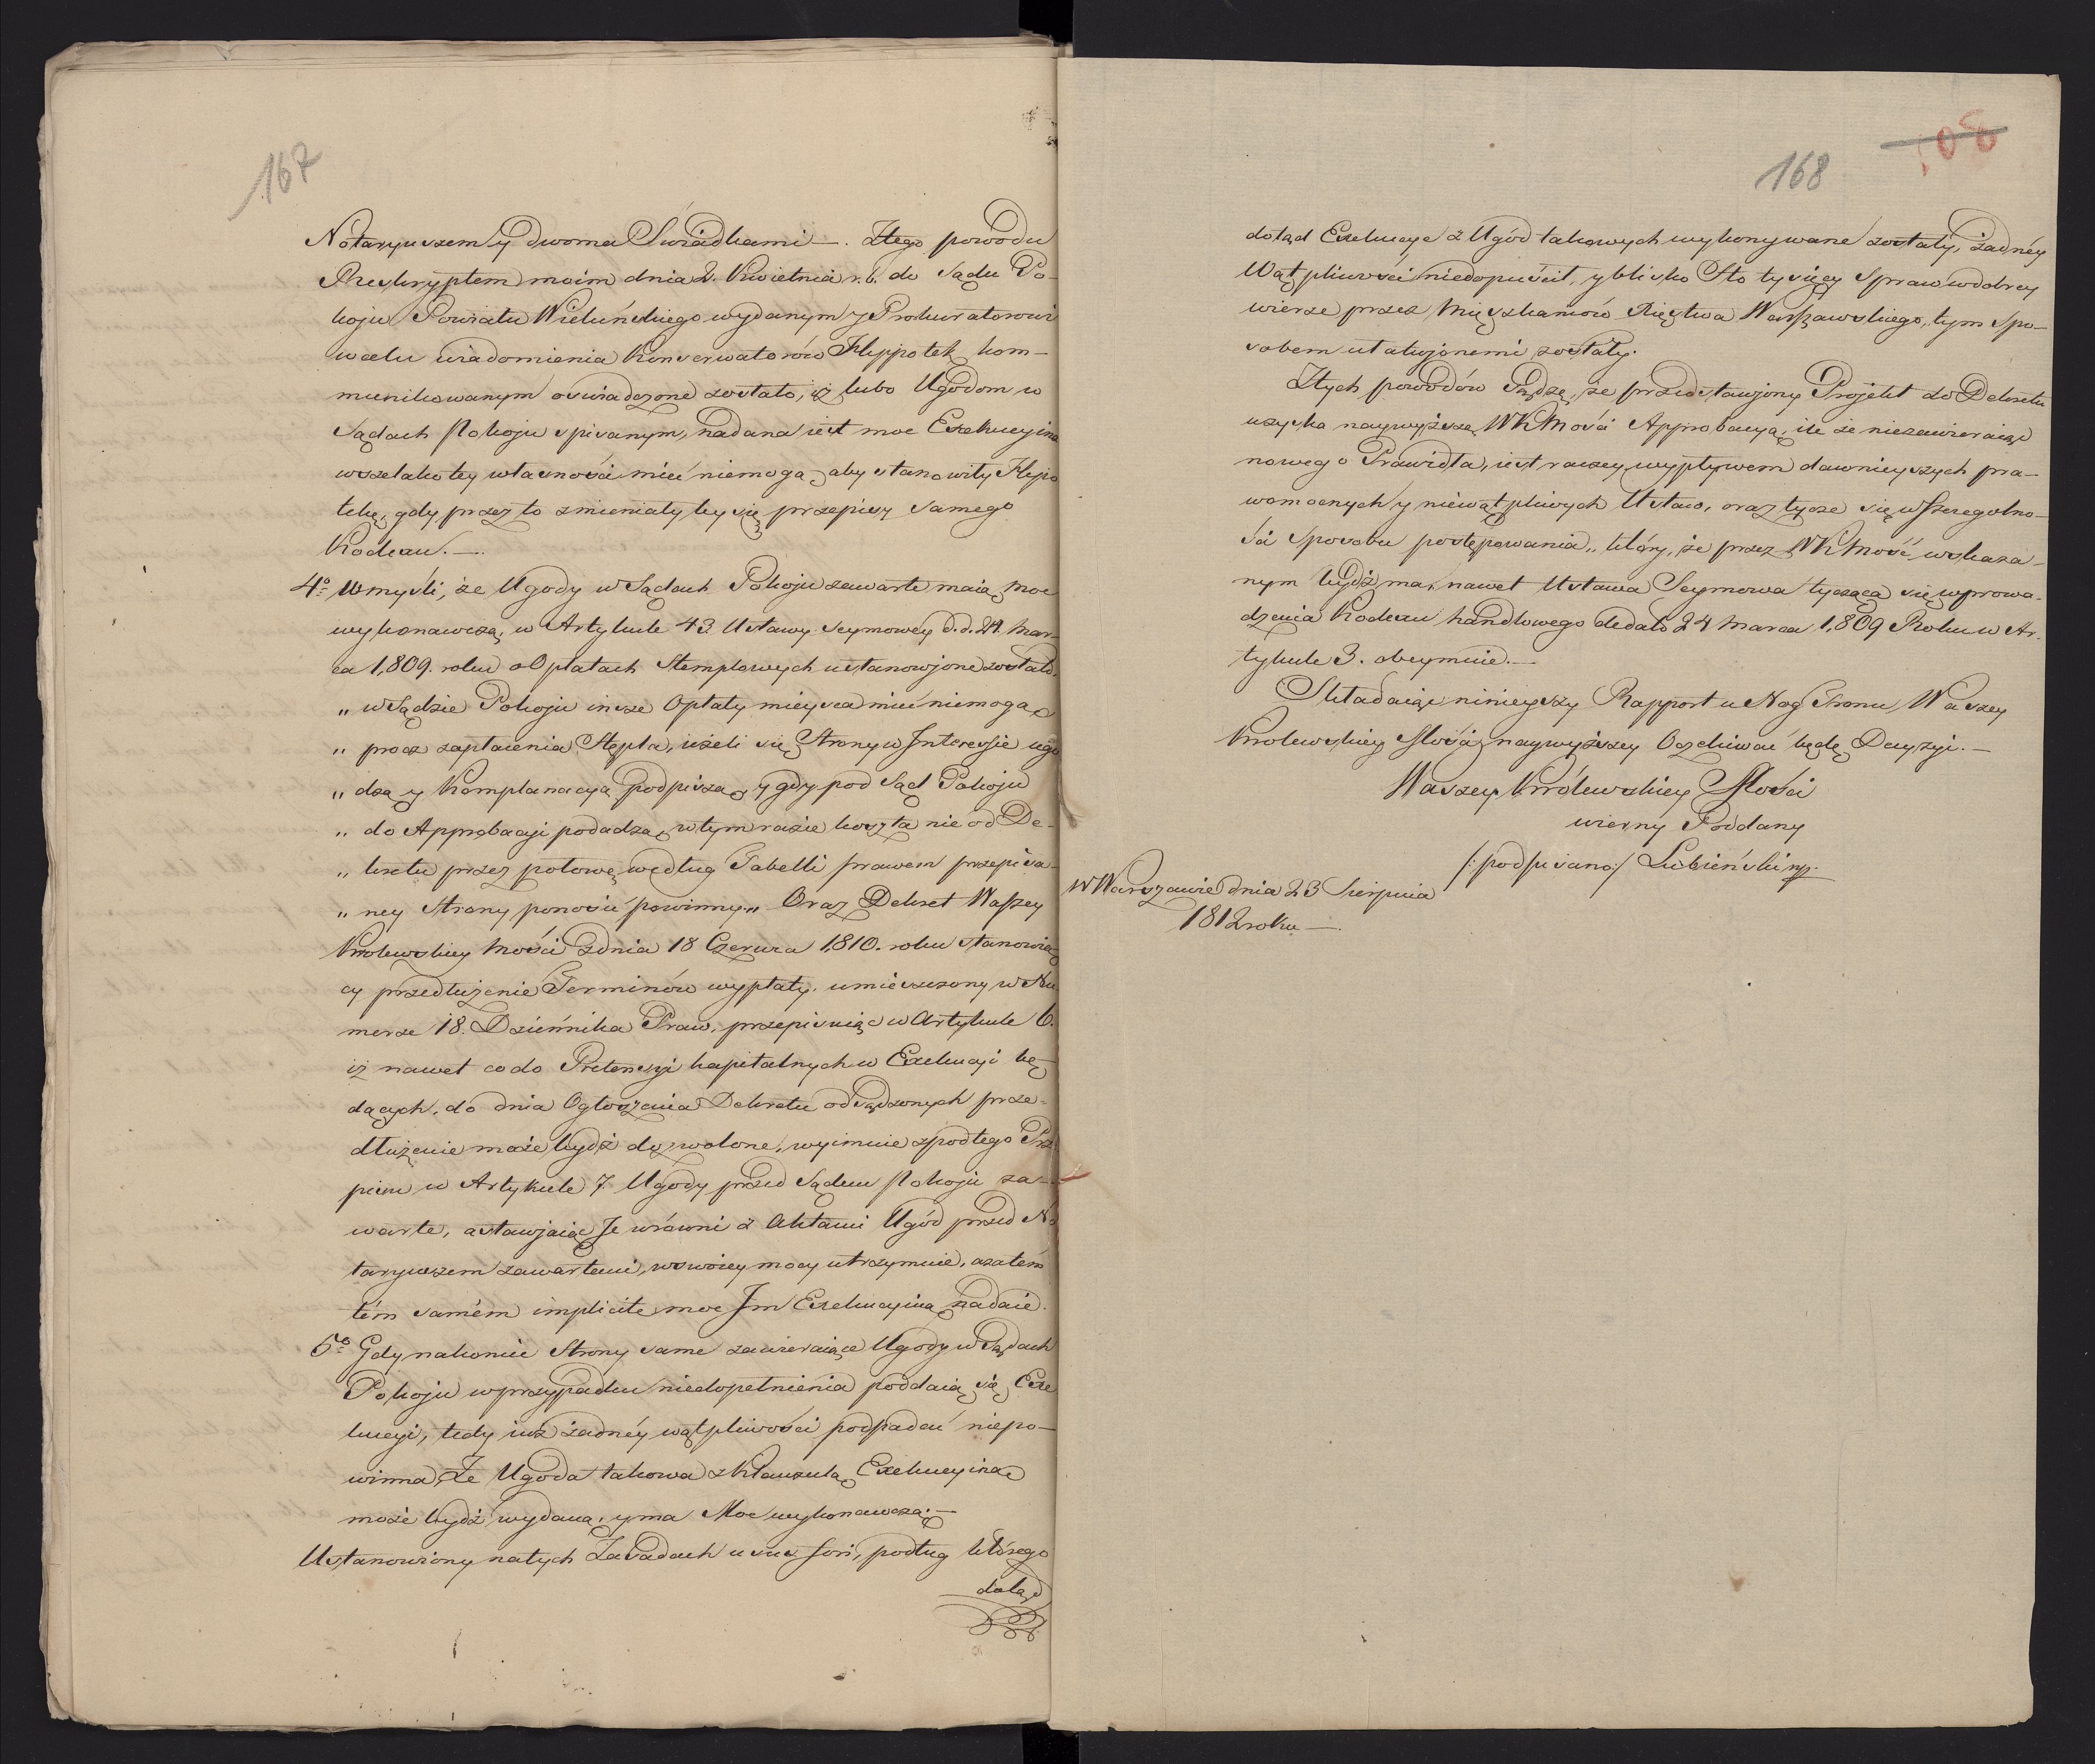 167
Notaryuszem y dwoma Swiadkami —. Ztego powodu
Reskryptem moim dnia 2. Kwietnia r. b. do Sądu Po-
koju Powiatu Wieluńskiego wydanym y Prokuratorowi
wcelu uiadomienia Konserwatorów Hyppotek kom-
munikowanym oswiadczone zostało, iż lubo Ugodom w
Sądach Pokoju spisanym, nadana iest moc Exekucyina
wszelako tey własności mieć niemogą, aby stanowiły Hypo
tekę, gdy przez to zmieniałyby się przepisy samego
Kodexu. —.
4o Wmyśli, że Ugody w Sądach Pokoju zawarte maią moc
wykonawczą, w Artykule 43. Ustawy Seymowey d. d. 24. Mar-
ca 1,809. roku o Opłatach Stemplowych ustanowjone zostało.
„ w Sądzie Pokoju insze Opłaty mieysca mieć niemogą
„ procz zapłacenia Stępla, ieżeli się Strony w Interessie ugo
„ dzą y Komplanacyą podpiszą, y gdy pod Sąd Pokoju
„ do Approbacyi podadzą, w tym razie koszta nie od De-
„ kretu przez połowę według Tabelli prawem przepisa-
„ ney Strony ponosić powinny „ Oraz Dekret Waszey
Krolewskiey Mości zdnia 18 Czerwca 1,810. roku stanowią
cy przedłużenie Terminów wypłaty, umieszczony w Nu
merze 18. Dzieńnika Praw, przepisuiąc w Artykule 6.
iż nawet codo Pretensyi kapitalnych w Exekucyi bę-
dących, do dnia Ogłoszenia Dekretu odsądzonych prze-
dłużenie może bydź dozwolone, wyimuie zpod tego Prze
pisu w Artykule 7. Ugody przed Sądem Pokoju za-
warte, a stawjaiąc Je wrówni z Aktami Ugód przed No
taryuszem zawartemi, wswoiey mocy utrzymuie, azatem
tém samém implicite moc Im Exekucyiną nadaie.
5o Gdy nakoniec Strony same zawieraiące Ugody w Sądach
Pokoju wprzypadku niedopełnienia poddaią się Exe
kucyi, tedy iuż żadnéy wątpliwości podpadać niepo-
winna, że Ugoda takowa z Klauzulą Exekucyiną
może bydź wydana, y ma Moc wykonawczą. —
Ustanowiony natych Zasadach usus fori, podług którego
dotąd
168
dotąd Exekucye z Ugód takowych wykonywane zostały, żadnéy
Wątpliwości niedopuścił, y blisko Sto tysięcy Spraw wdobrey
wierze przez Mieszkańców Xięstwa Warszawskiego, tym spo-
sobem utatwjonemi zostały.
Ztych powodów sądzę, że przedstawjony Projekt do Dekretu
uzyska naywyższą WKMości Approbacyą, ile że niezawieraiąc
nowego Prawidła, iest raczey wypływem dawnieyszych pra-
womocnych y niewątpliwych Ustaw, oraz tycze się wszczegolno-
ści sposobu postępowania, który, że przez WKMość wskaza-
nym bydź ma, nawet Ustawa Seymowa tycząca się wprowa-
dzenia Kodexu handlowego de dato 24 Marca 1,809 Roku w Ar-
tykule 3. obeymuie. —
Składaiąc ninieyszy Rapport u Nog Tronu Waszey
Krolewskiey Mości, naywyższey Oczekiwać będę Decyzyi. —
Waszey Królewskiey Mości
wierny Poddany
/: podpisano :/ Łubieński mp.
w Warszawie dnia 23 Sierpnia
1812 roku —.